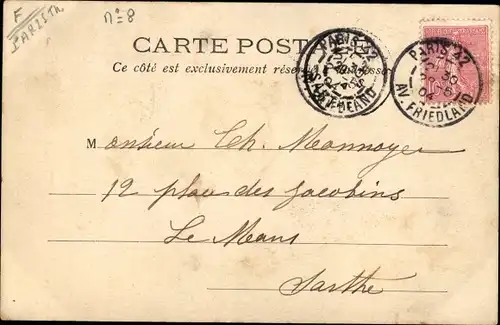 F
PARIS TH.
nº 8
CARTE POST
Ce côté est exclusivement réser
PARIS 22
AV. FRIEDLAND
PARIS 22
AV. FRIEDLAND
Monsieur Ch. Monnoyer
12 place des Jacobins
Le Mans
Sarthe